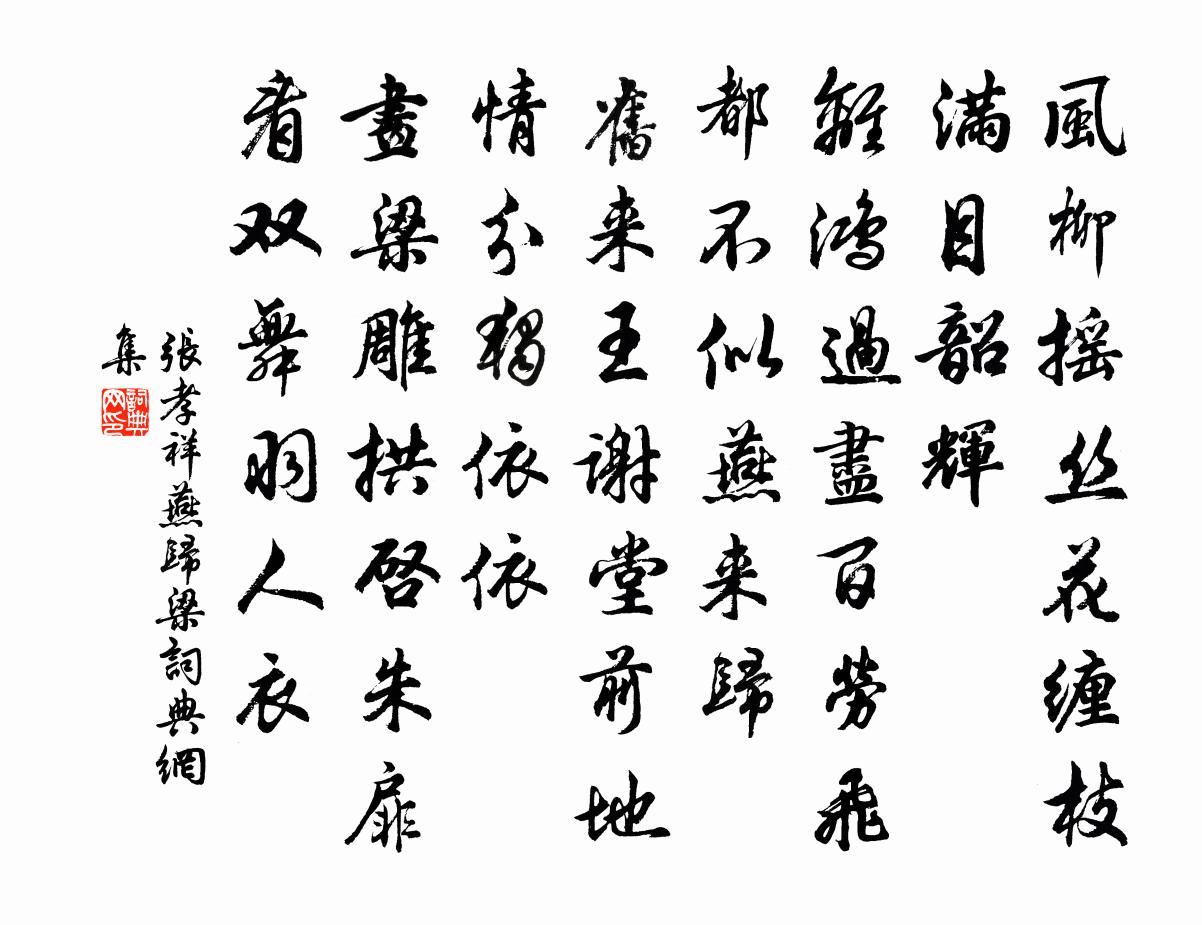 風柳摇丝花缠枝
满目韶輝
離鴻過盡百勞飛
都不似燕来歸
舊来王謝堂前地
情分獨依依
畫梁雕拱啓朱扉
看双舞羽人衣
張孝祥燕歸梁詞典網
集
詞典网印